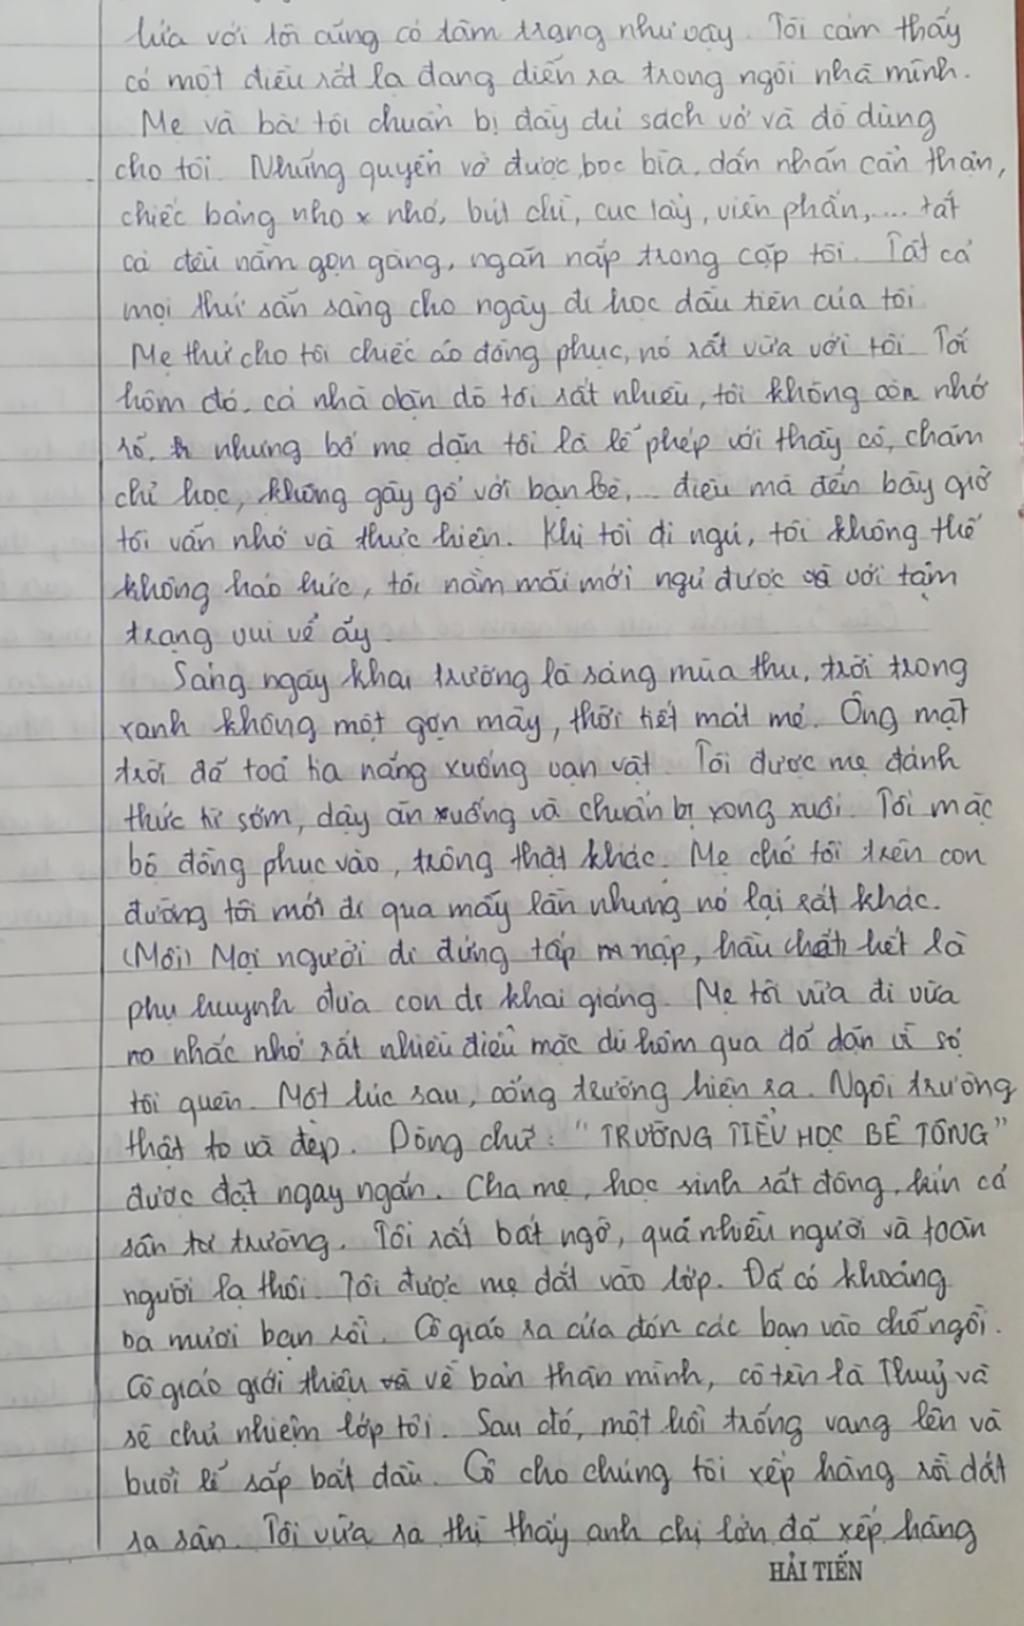 lứa với tôi cũng có tâm trạng như vậy. Tôi cảm thấy
có một điều rất lạ đang diễn ra trong ngôi nhà mình.
Mẹ và bà tôi chuẩn bị đầy đủ sách vở và đồ dùng
cho tôi. Những quyển vở được bọc bìa, dán nhãn cẩn thận,
chiếc bảng nho x nhỏ, bút chì, cục tẩy, viên phấn,.... tất
cả đều nằm gọn gàng, ngăn nắp trong cặp tôi. Tất cả
mọi thứ sẵn sàng cho ngày đi học đầu tiên của tôi
Mẹ thử cho tôi chiếc áo đồng phục, nó rất vừa với tôi. Tối
hôm đó, cả nhà dặn dò tôi rất nhiều, tôi không còn nhớ
rõ, nhưng bố mẹ dặn tôi là lễ phép với thầy cô, chăm
chỉ học, không gây gổ với bạn bè,... điều mà đến bây giờ
tôi vẫn nhớ và thực hiện. Khi tôi đi ngủ, tôi không thể
không háo hức, tôi nằm mãi mới ngủ được với tâm
trạng vui vẻ ấy.
Sáng ngày khai trường là sáng mùa thu, trời trong
xanh không một gợn mây, thời tiết mát mẻ. Ông mặt
trời đã toả tia nắng xuống vạn vật. Tôi được mẹ đánh
thức từ sớm, dậy ăn xuống và chuẩn bị xong xuôi. Tôi mặc
bộ đồng phục vào, trông thật khác. Mẹ chở tôi trên con
đường tôi mới đi qua mấy lần nhưng nó lại rất khác.
(Mỗi) Mọi người đi đứng tấp nập, hầu hết là
phụ huynh đưa con đi khai giảng. Mẹ tôi vừa đi vừa
no nhắc nhở rất nhiều điều mặc dù hôm qua đã dặn vì sợ
tôi quên. Một lúc sau, cổng trường hiện ra. Ngôi trường
thật to và đẹp. Dòng chữ: "TRƯỜNG TIỂU HỌC BÊ TÔNG"
được đặt ngay ngắn. Cha mẹ, học sinh rất đông, kín cả
sân trường. Tôi rất bất ngờ, quá nhiều người và toàn
người lạ thôi. Tôi được mẹ dắt vào lớp. Đã có khoảng
ba mươi bạn rồi. Cô giáo ra cửa đón các bạn vào chỗ ngồi.
Cô giáo giới thiệu về bản thân mình, cô tên là Thuỷ và
sẽ chủ nhiệm lớp tôi. Sau đó, một hồi trống vang lên và
buổi lễ sắp bắt đầu. Cô cho chúng tôi xếp hàng rồi dắt
ra sân. Tôi vừa ra thì thấy anh chị lớn đã xếp hàng
HẢI TIẾN